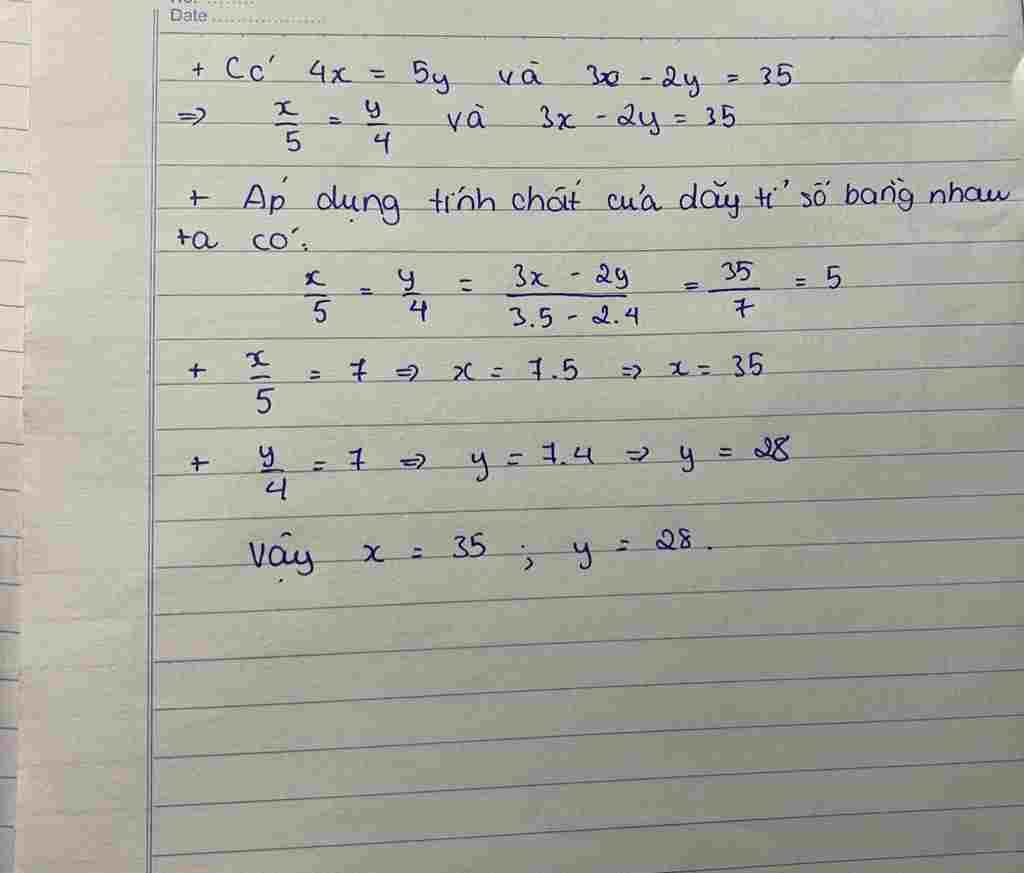 Date
+ Có 4x = 5y và 3x - 2y = 35
⇒ x/5 = y/4 và 3x - 2y = 35
+ Áp dụng tính chất của dãy tỉ số bằng nhau
ta có:
x/5 = y/4 = (3x - 2y)/(3.5 - 2.4) = 35/7 = 5
+ x/5 = 7 ⇒ x = 7.5 ⇒ x = 35
+ y/4 = 7 ⇒ y = 7.4 ⇒ y = 28
Vậy x = 35 ; y = 28.